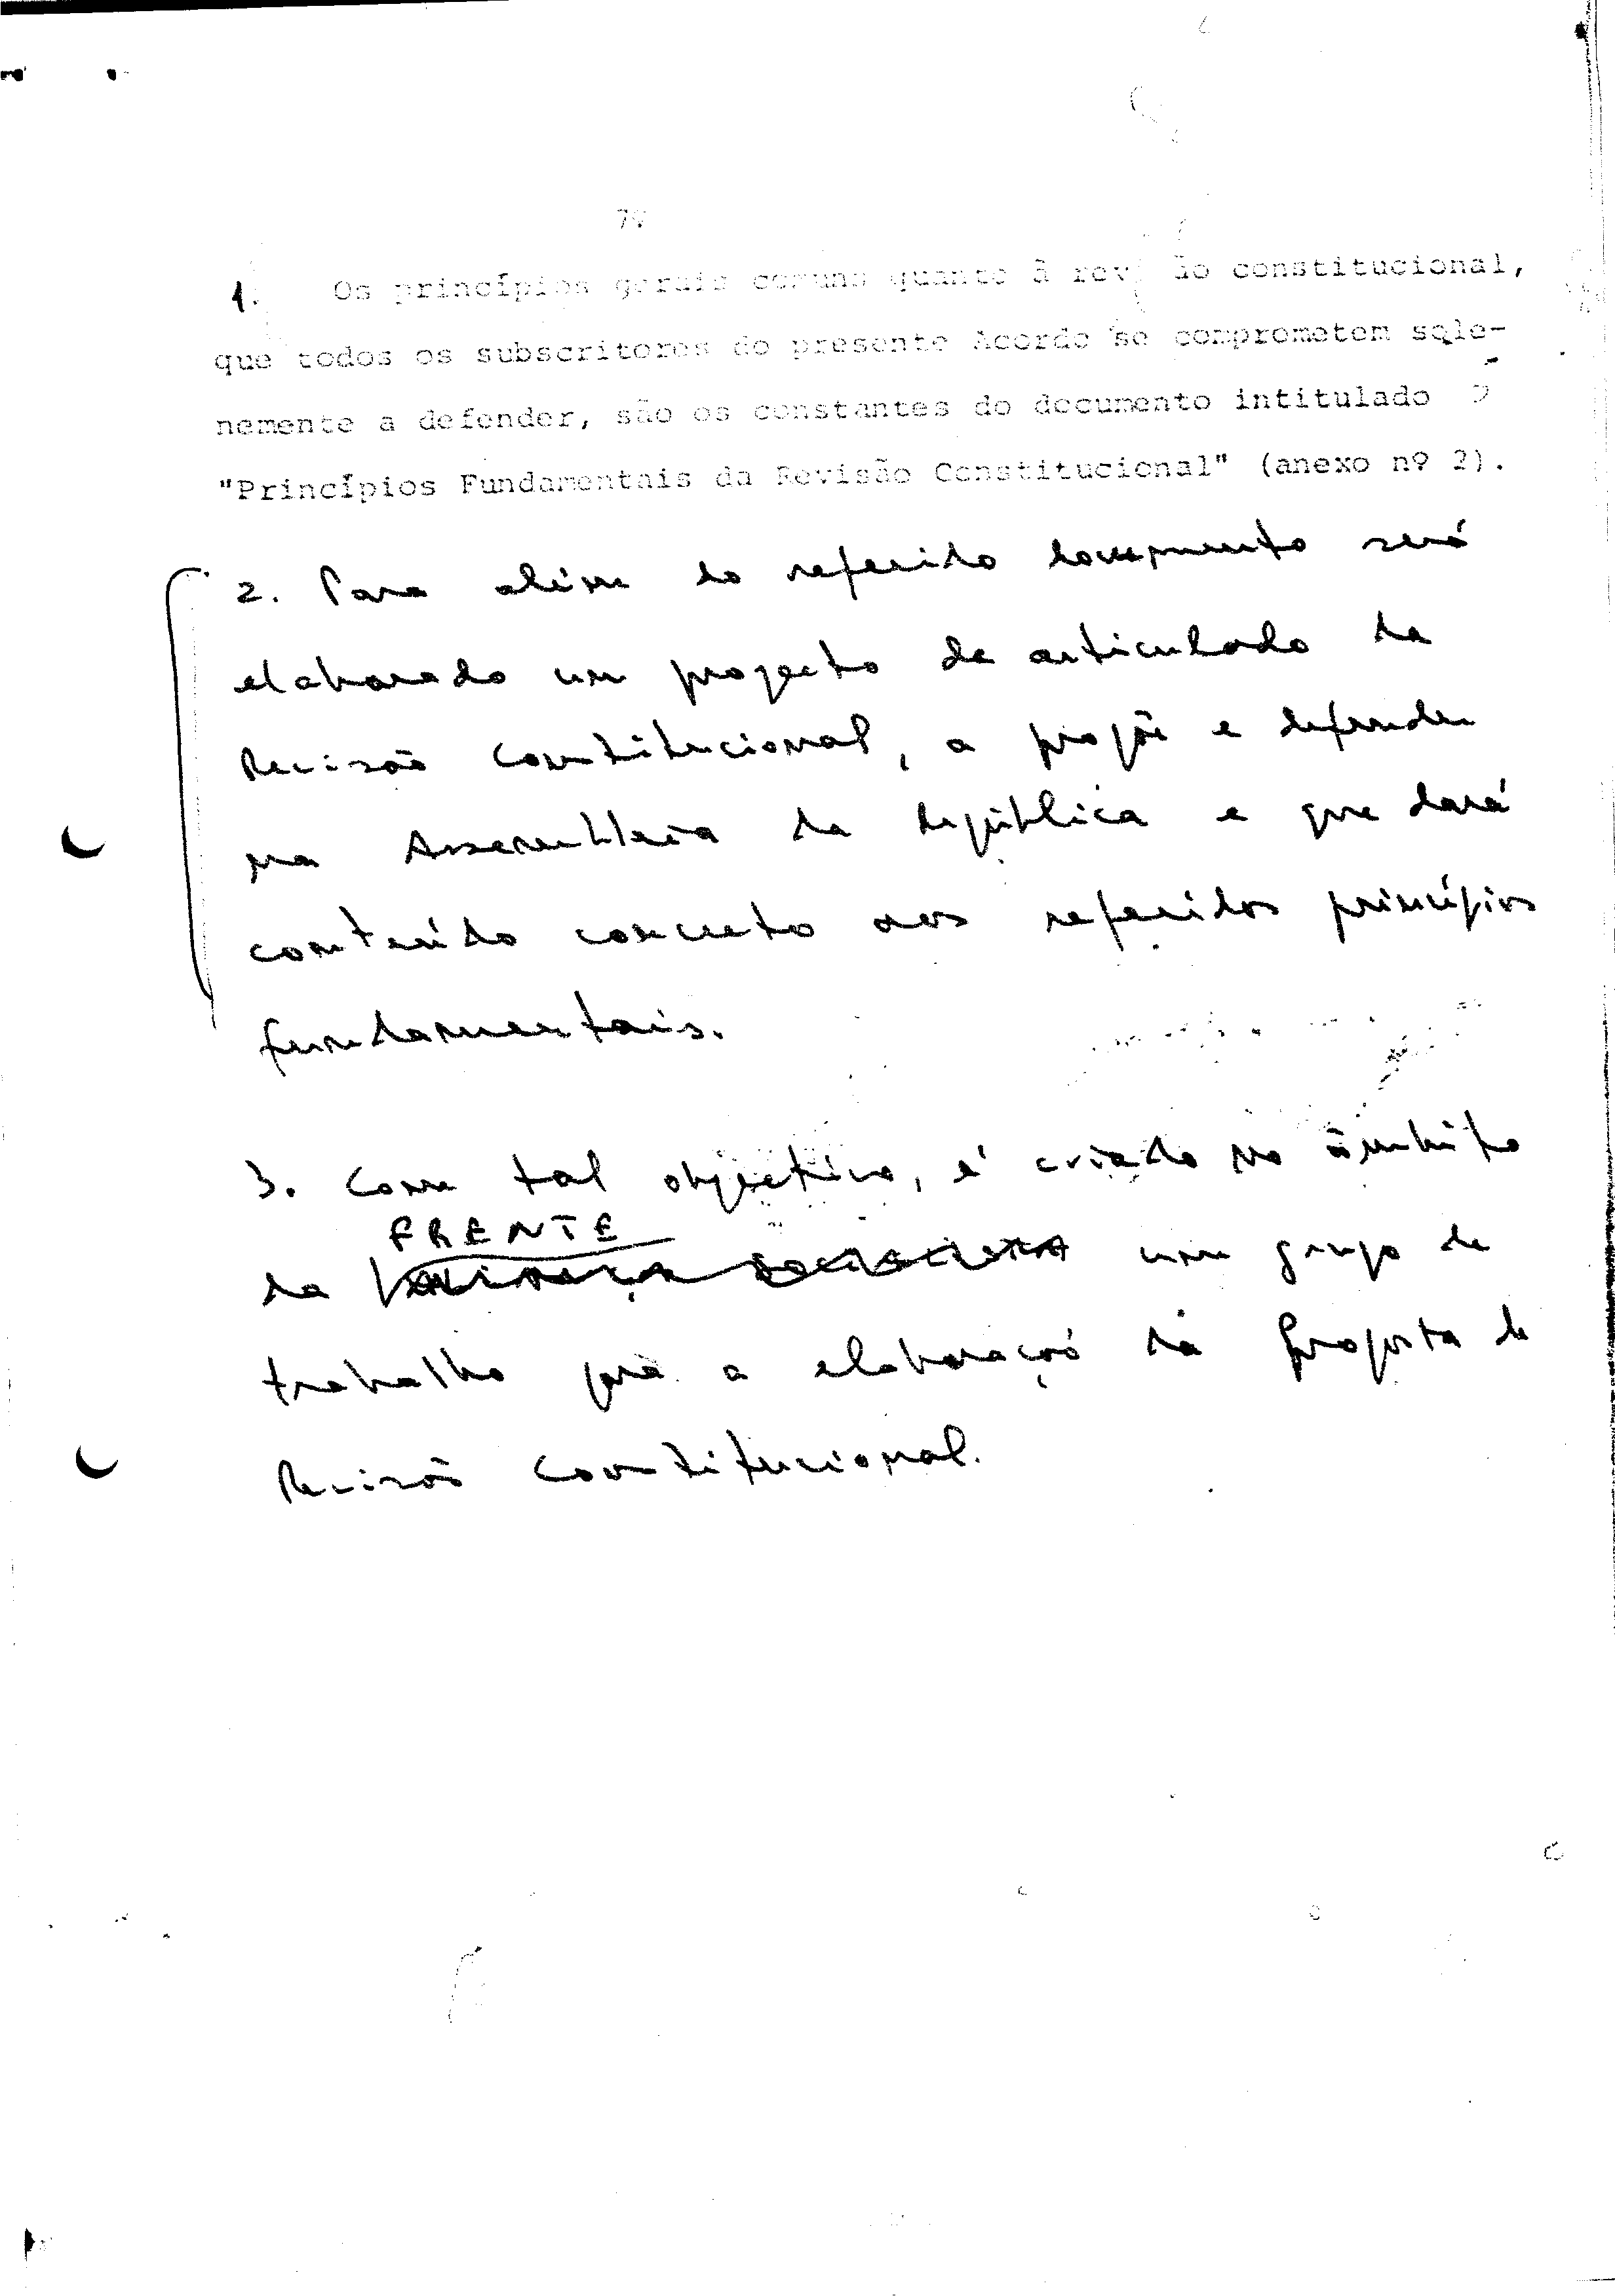 7º
1. Os princípios gerais comuns quanto à revisão constitucional,
que todos os subscritores do presente Acordo se comprometem sole-
nemente a defender, são os constantes do documento intitulado
"Princípios Fundamentais da Revisão Constitucional" (anexo nº 2).
2. Para além do referido documento será
elaborado um projecto de articulado da
Revisão Constitucional, a propôr e defender
na Assembleia da República e que dará
conteúdo concreto aos referidos princípios
fundamentais.
3. Com tal objectivo, é criado no âmbito
FRENTE
da ALIANÇA SOCIALISTA um grupo de
trabalho para a elaboração da Proposta de
Revisão Constitucional.